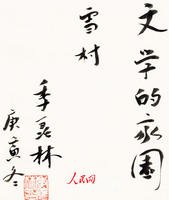 文学的家園
雪村
季羡林
庚寅冬
人民网